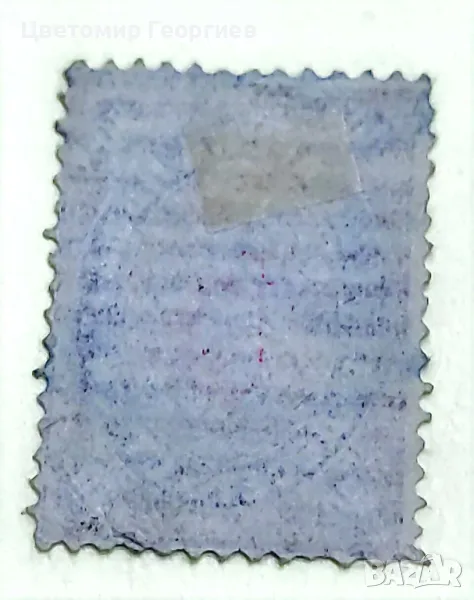 Цветомир Георгиев
BAZAR